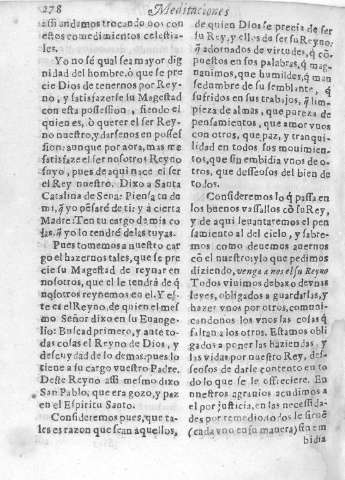 278 Meditaciones
assi andamos trocando vnos con
estos comedimientos celestia-
les.
Yo no sé qual sea mayor dig
nidad del hombre, ó que se pre
cie Dios de tenernos por Rey-
no, y satisfazerse su Magestad
con esta possession, siendo el
quien es, ò querer el ser Reyno
nuestro, y darsenos en posses
sion: aunque por aora, mas me
satisface el ser nosotros Reyno
suyo, pues de aqui nace el ser
el Rey nuestro. Dixo a Santa
Catalina de Sena: Piensa tu de
mi, q̃ yo pẽsaré de ti: y a cierta
Madre: Ten tu cargo de mis co
sas, q̃ yo lo tendré de las tuyas.
Pues tomemos a nuestro car
go el hazernos tales, que se pre
cie su Magestad de reynar en
nosotros, que el le tendrá de q̃
nosotros reynemos en el. Y es-
te es el Reyno, de quien el mes
mo Señor dixo en su Euange-
lio: Buscad primero, y ante to-
das cosas el Reyno de Dios, y
descuydad de lo demas: pues lo
tiene a su cargo vuestro Padre.
Deste Reyno assi mesmo dixo
San Pablo, que era gozo, y paz
en el Espiritu Santo.
Consideremos pues, que ta-
les es razon que sean aquellos,
de quien Dios se precia de ser
su Rey, y ellos de ser su Reyno:
q̃ adornados de virtudes, q̃ cõ-
puestos en sus palabras, q̃ mag-
nanimos, que humildes, q̃ man
sedumbre de su semblante, q̃
sufridos en sus trabajos, q̃ lim-
pieza de almas, que pureza de
pensamientos, que amor vnos
con otros, que paz, y tranqui-
lidad en todos sus mouimien-
tos, que sin embidia vnos de o-
tros, que desseosos del bien de
todos.
Consideremos lo q̃ passa en
los buenos vassallos cõ su Rey,
y de aqui leuantaremos el pen-
samiento al del cielo, y sabre-
mos como deuemos auernos
con el nuestro; y lo que pedimos
diziendo, venga a nos el tu Reyno
Todos viuimos debaxo de vnas
leyes, obligados a guardarlas, y
hazer vnos por otros, comuni-
candonos los vnos las cosas q̃
faltan a los otros. Estamos obli
gados a poner las haziendas, y
las vidas por nuestro Rey, des-
seosos de darle contento en to
do lo que se le ofreciere. En
nuestros agrauios acudimos a
el por justicia, en las necessida-
des por remedio, todos le siruẽ
(cada vno en su manera) sin em
bidia